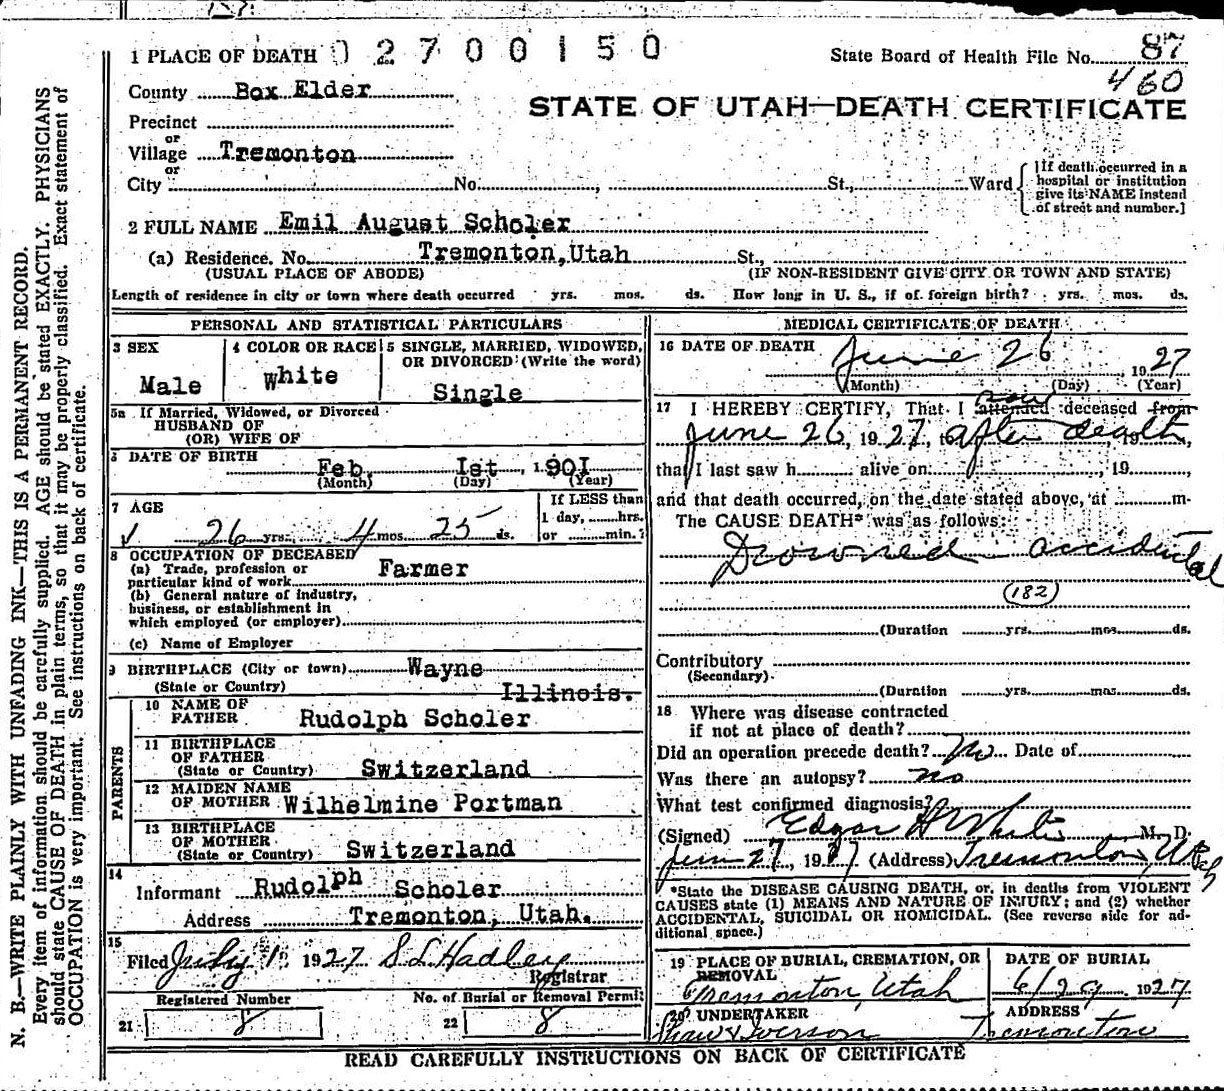 1 PLACE OF DEATH 02700150 State Board of Health File No. 87
460
County Box Elder
STATE OF UTAH—DEATH CERTIFICATE
Precinct
or
Village Tremonton
or
City No. , St., Ward
[If death occurred in a
hospital or institution
give its NAME instead
of street and number.]
2 FULL NAME Emil August Scholer
(a) Residence. No. Tremonton, Utah St.,
(USUAL PLACE OF ABODE) (IF NON-RESIDENT GIVE CITY OR TOWN AND STATE)
Length of residence in city or town where death occurred yrs. mos. ds. How long in U. S., if of foreign birth? yrs. mos. ds.
PERSONAL AND STATISTICAL PARTICULARS
3 SEX
Male
4 COLOR OR RACE
White
5 SINGLE, MARRIED, WIDOWED,
OR DIVORCED (Write the word)
Single
5a If Married, Widowed, or Divorced
HUSBAND OF
(OR) WIFE OF
6 DATE OF BIRTH Feb. Ist , 1901
(Month) (Day) (Year)
7 AGE
26 yrs. 4 mos. 25 ds.
If LESS than
1 day, hrs.
or min.?
8 OCCUPATION OF DECEASED
(a) Trade, profession or
particular kind of work Farmer
(b) General nature of industry,
business, or establishment in
which employed (or employer)
(c) Name of Employer
9 BIRTHPLACE (City or town) Wayne
(State or Country) Illinois.
PARENTS
10 NAME OF
FATHER Rudolph Scholer
11 BIRTHPLACE
OF FATHER
(State or Country) Switzerland
12 MAIDEN NAME
OF MOTHER Wilhelmine Portman
13 BIRTHPLACE
OF MOTHER
(State or Country) Switzerland
14
Informant Rudolph Scholer
Address Tremonton, Utah.
15
Filed July 1 1927 S L Hadley
Registrar
Registered Number
21 8
No. of Burial or Removal Permit
22 8
MEDICAL CERTIFICATE OF DEATH
16 DATE OF DEATH June 26 , 1927
(Month) (Day) (Year)
17 I HEREBY CERTIFY, That I attended saw deceased from
June 26, 1927, to after death, 19 ,
that I last saw h alive on , 19 ,
and that death occurred, on the date stated above, at m.
The CAUSE DEATH* was as follows:
Drowned accidental
(182)
(Duration yrs. mos. ds.
Contributory
(Secondary)
(Duration yrs. mos. ds.
18 Where was disease contracted
if not at place of death?
Did an operation precede death? No Date of
Was there an autopsy? no
What test confirmed diagnosis?
(Signed) Edgar H White M. D.
June 27, 1927 (Address) Tremonton, Utah
*State the DISEASE CAUSING DEATH, or, in deaths from VIOLENT
CAUSES state (1) MEANS AND NATURE OF INJURY; and (2) whether
ACCIDENTAL, SUICIDAL OR HOMICIDAL. (See reverse side for ad-
ditional space.)
19 PLACE OF BURIAL, CREMATION, OR
REMOVAL
Tremonton, Utah
DATE OF BURIAL
6/29 1927
20 UNDERTAKER
Shaw & Iverson
ADDRESS
Tremonton
READ CAREFULLY INSTRUCTIONS ON BACK OF CERTIFICATE
N. B.—WRITE PLAINLY WITH UNFADING INK—THIS IS A PERMANENT RECORD.
Every item of information should be carefully supplied. AGE should be stated EXACTLY. PHYSICIANS
should state CAUSE OF DEATH in plain terms, so that it may be properly classified. Exact statement of
OCCUPATION is very important. See instructions on back of certificate.